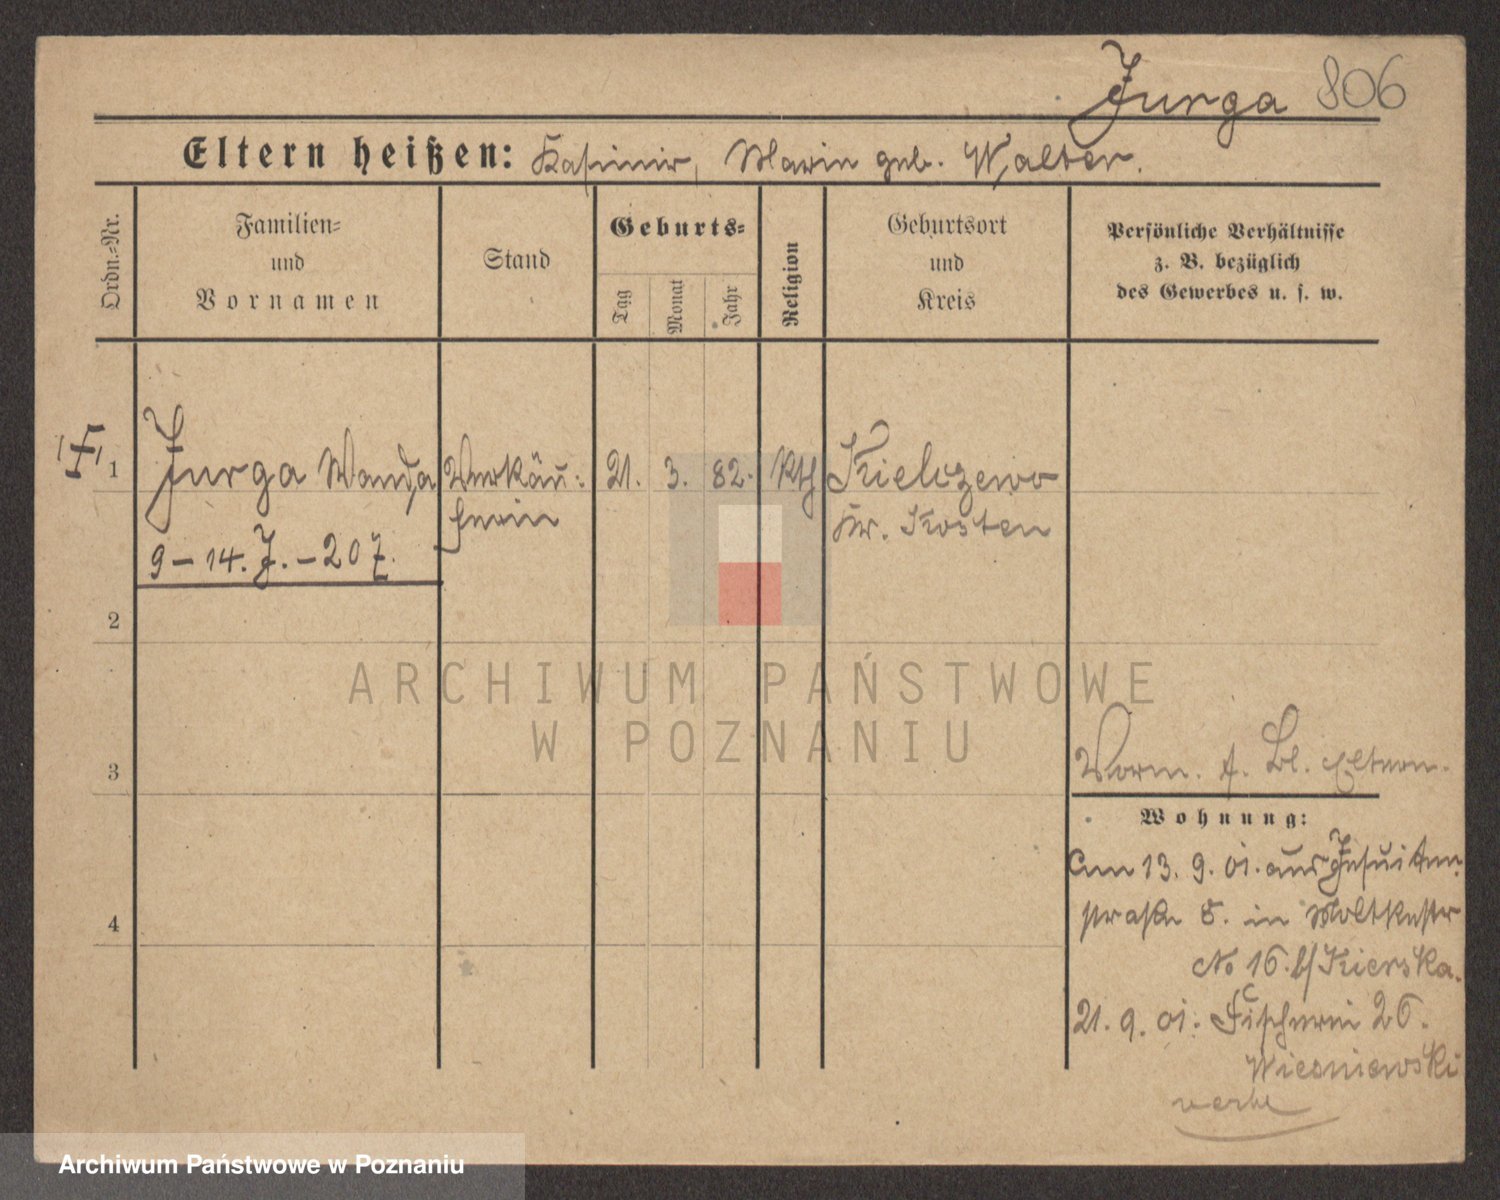 Jurga 806
Eltern heißen: Kasimir, Marie geb. Walter.
Ordn.-Nr.
Familien-
und
Vornamen
Stand
Geburts-
Tag
Monat
Jahr
Religion
Geburtsort
und
Kreis
Persönliche Verhältnisse
z. B. bezüglich
des Gewerbes u. s. w.
1 Jurga Wanda Verkäu- 21. 3. 82. Kth Kielczewo
ferin Kr. Kosten
9 - 14. J. - 207.
2
ARCHIWUM PAŃSTWOWE
W POZNANIU
3
Vorm. f. Bl. Eltern.
Wohnung:
Am 13. 9. 01. aus Jesuiten
straße 5. in Moltkestr
No 16. b/ Kierska.
4
21. 9. 01. Fischerei 26.
Wiesniewski
Archiwum Państwowe w Poznaniu